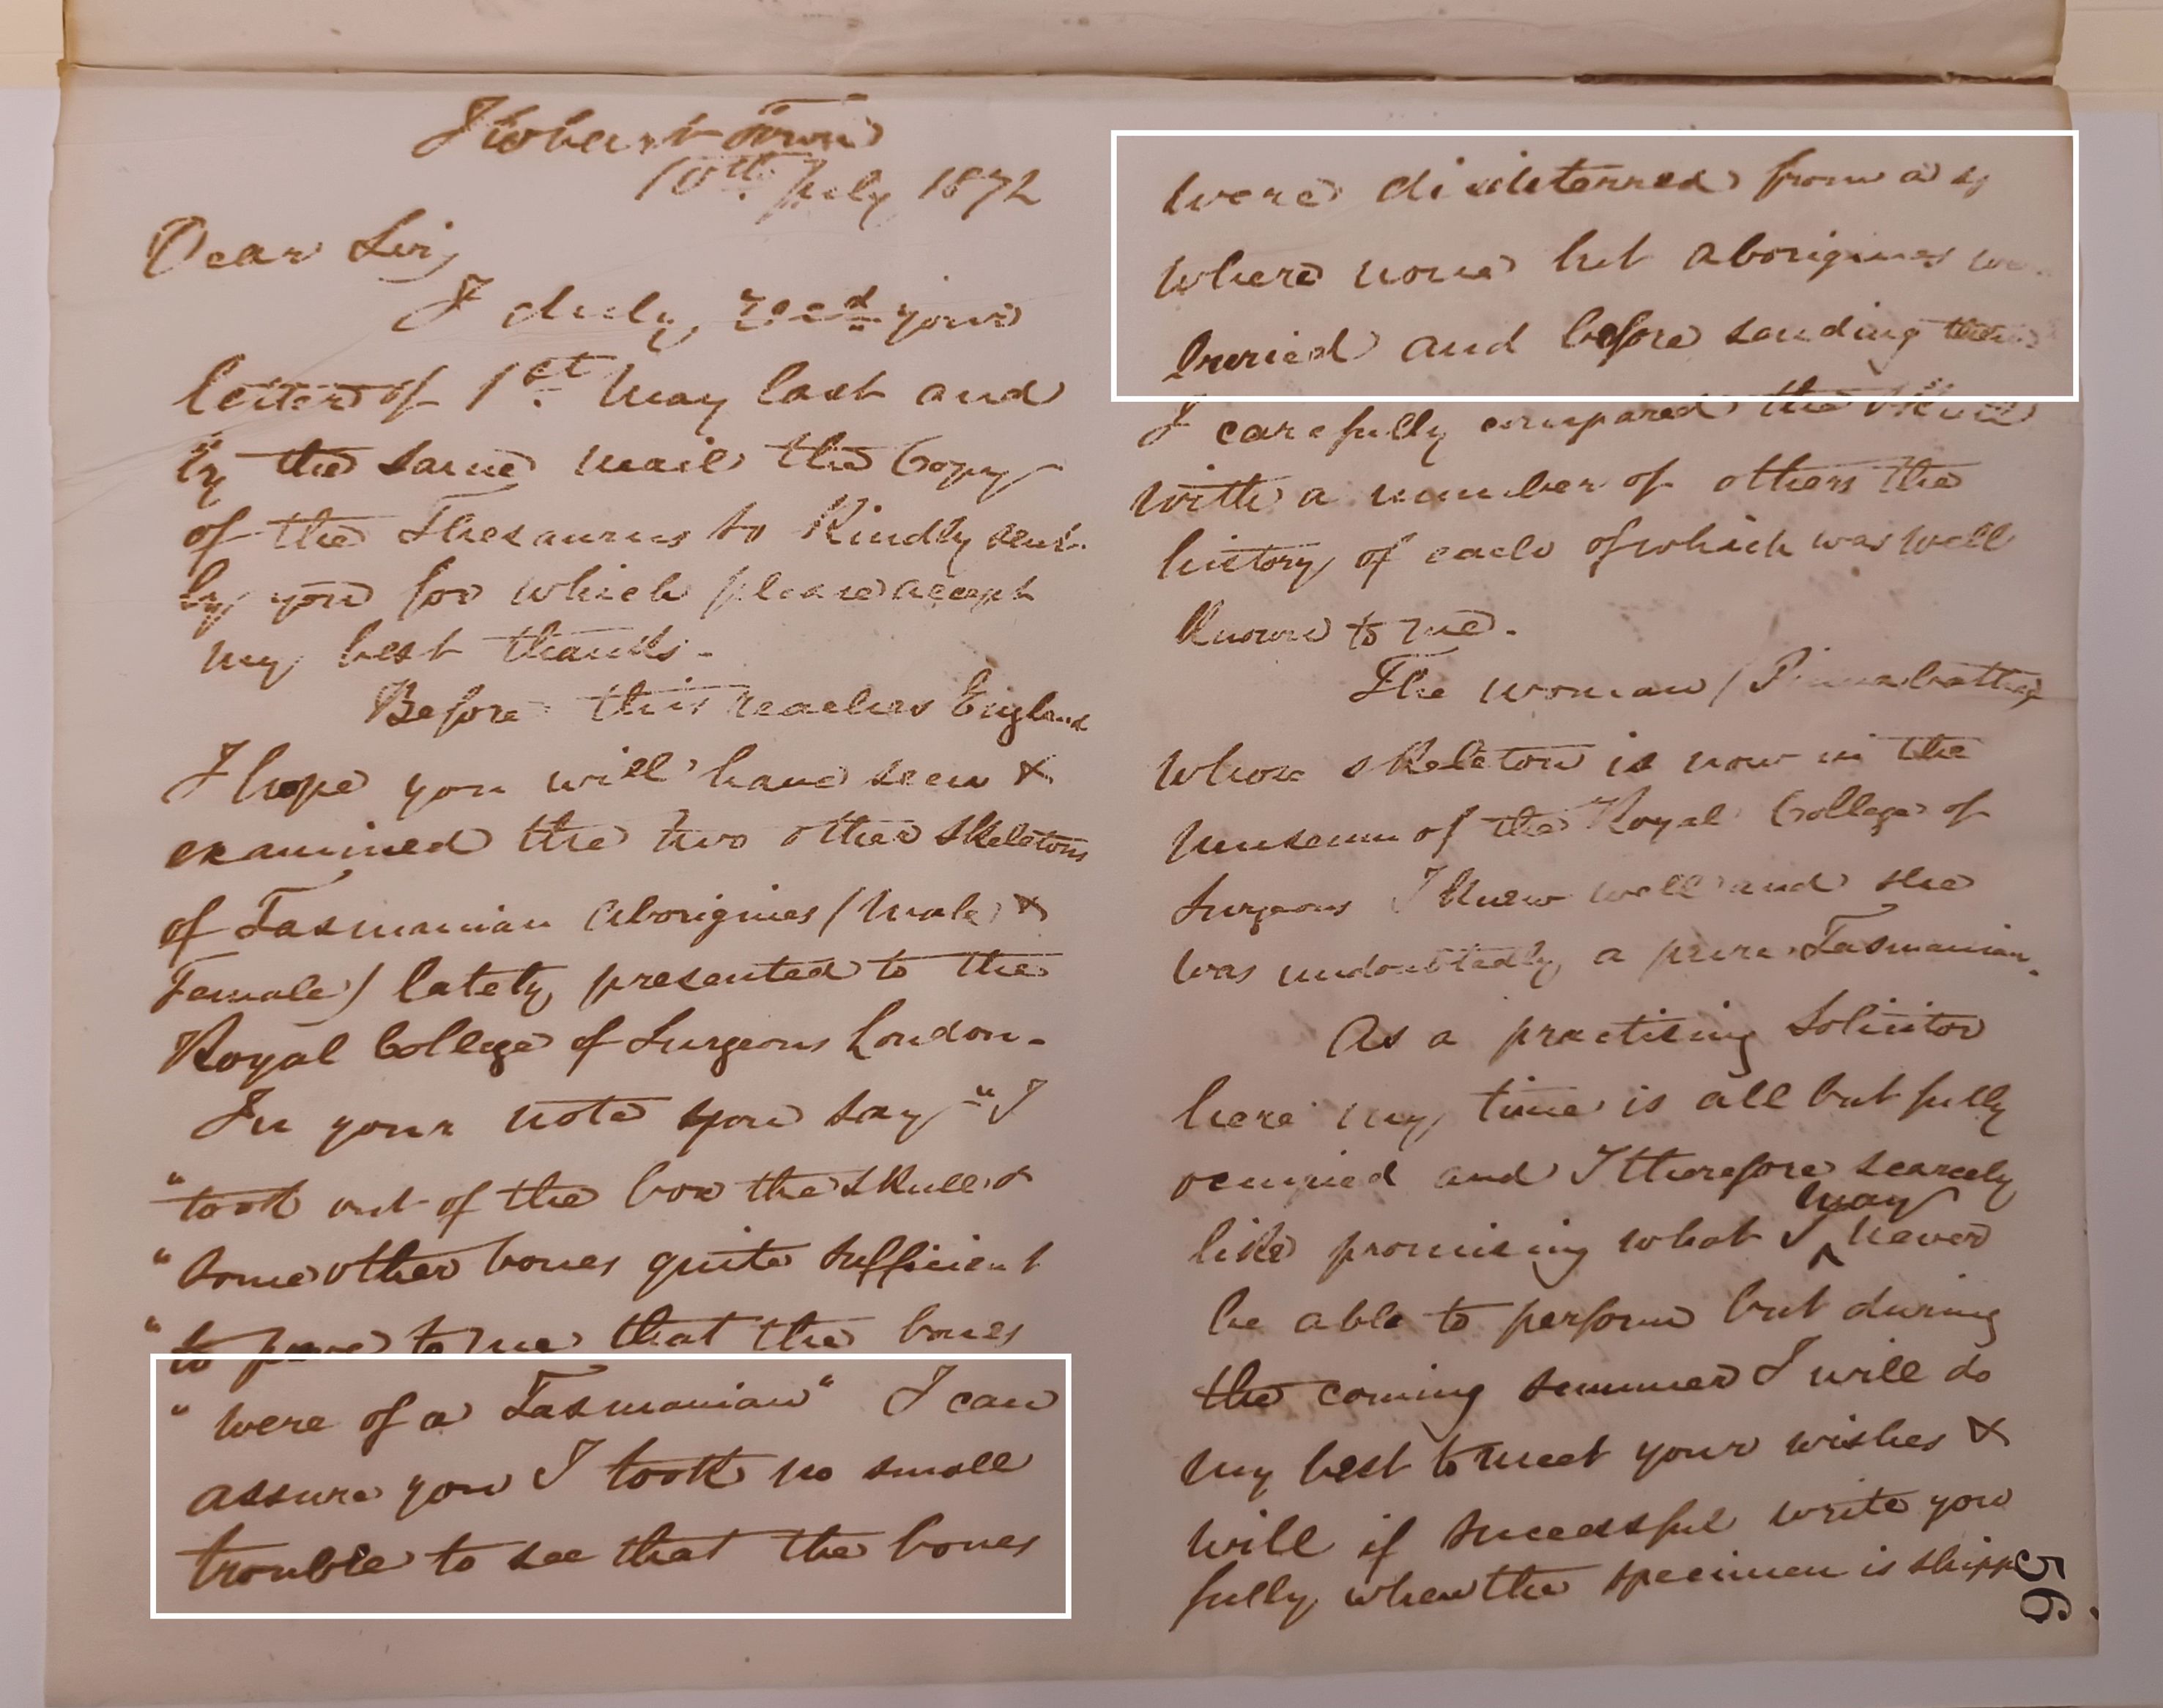 Hobart Town
10th July 1872
Dear Sir,
I duly recd your
letter of 1st May last and
by the same mail the Copy
of the Thesaurus so Kindly sent
by you for which please accept
my best thanks.
Before this reaches England
I hope you will have seen &
examined the two other skeletons
of Tasmanian Aborigines (Male &
Female) lately presented to the
Royal College of Surgeons London.
In your note you say "I
"took out of the box the skull &
"some other bones quite sufficient
"to prove to me that the bones
"were of a Tasmanian" I can
assure you I took no small
trouble to see that the bones
were disinterred from a
where none but aborigines
buried and before sending them
I carefully compared the
with a number of others the
history of each of which was well
Known to me.
The woman
whose skeleton is now in the
Museum of the Royal College of
Surgeons I Knew well and she
was undoubtedly a pure Tasmanian.
As a practising Solicitor
here my time is all but fully
occupied and I therefore scarcely
like promising what I may never
be able to perform but during
the coming summer I will do
my best to meet your wishes &
will if successful write you
fully when the specimen is
56